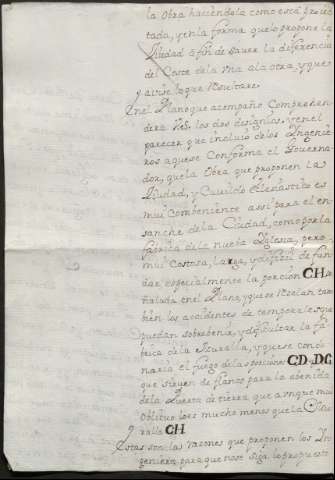 la obra haciendola como esta proiec
tada, y en la forma que lo propone la
Ciudad a fin de saver la diferencia
del Coste de la una a la otra, y que
avise lo que resultare.
En el Plano que acompaño Comprehen
derá VE. los dos designios, y en el
parecer que incluio de los Ingenie
ros a que se Conforma el Governa
dor, que la Obra que proponen la
Ciudad, y Cavildo Eclesiastico es
mui combeniente assi para el en
sanche de la Ciudad, como por la
fabrica de la nueba Iglesia, pero
mui Costosa, larga, y dificil de fun
dar especialmente la porcion CH se
ñalada en el Plano, y que se rezelan tam
bien los accidentes de temporales que
puedan sobrebenir, y dificultar la fa
brica de la muralla, y que se conde
naria el fuego de las porciones CD-DG
que sirven de flancos para la abenida
de la Puerta de tierra que aunque mui
Obliquo lo es mucho menos que la
ralla CH
Estas son las razones que proponen los In
genieros para que no se siga lo propuesto